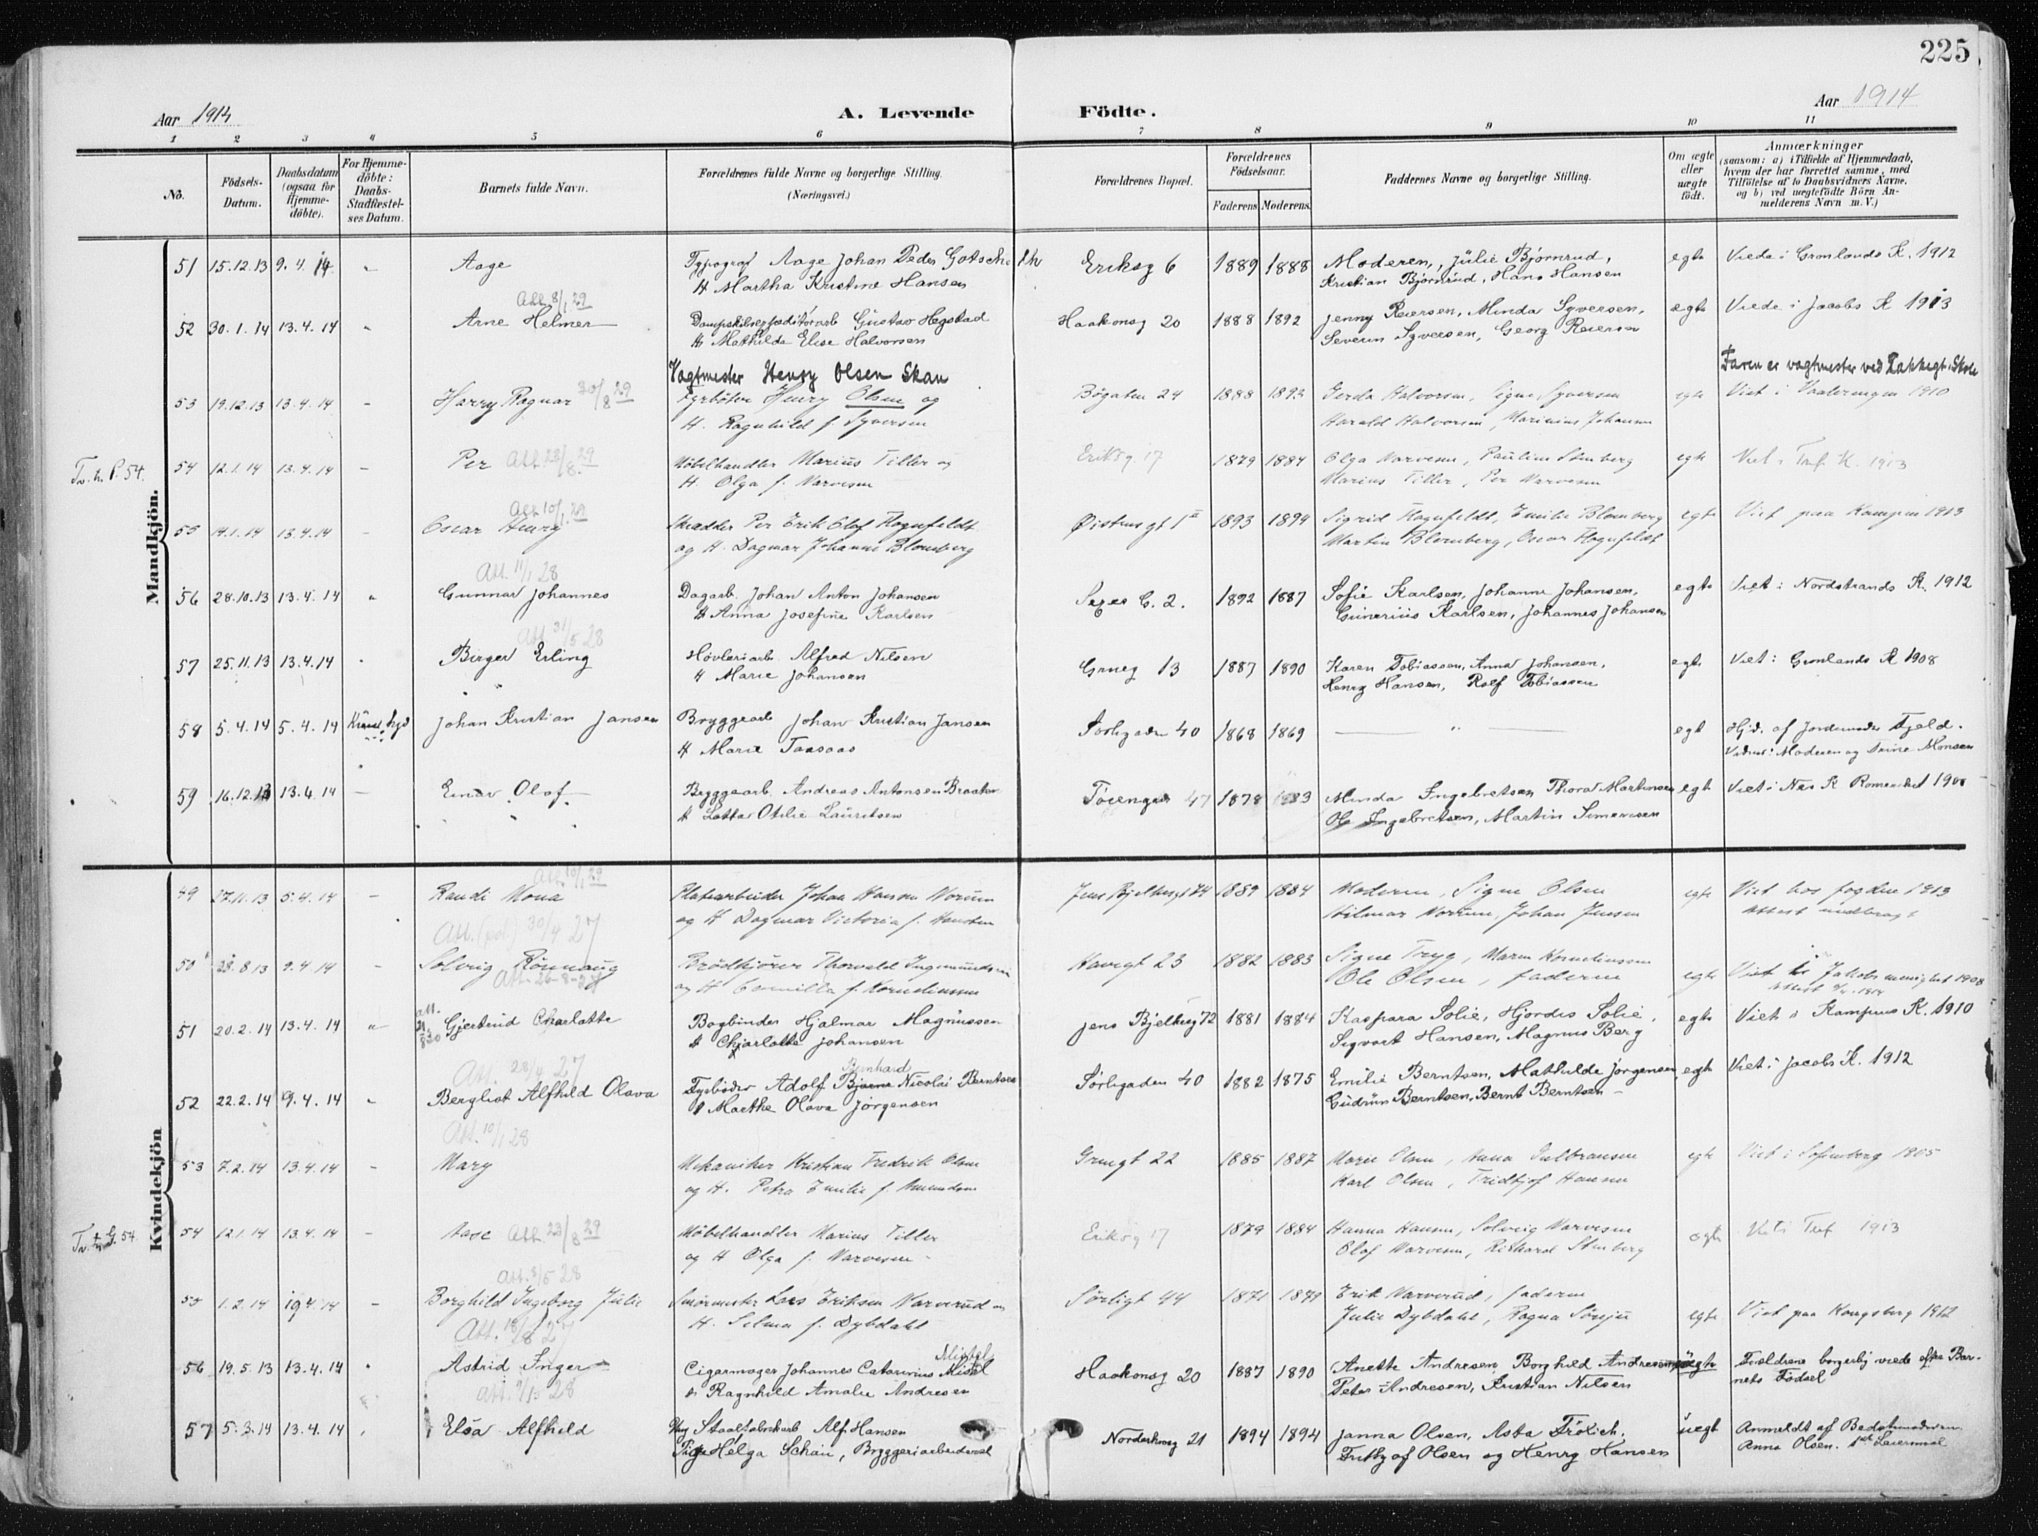 225
Aar 1914 A. Levende Födte. Aar 1914
1 2 3 4 5 6 7 8 9 10 11
No. Födsels-Datum. Daabsdatum (ogsaa for Hjemme-döbte). For Hjemme-döbte: Daabs-Stadfæstel-ses Datum. Barnets fulde Navn. Forældrenes fulde Navne og borgerlige Stilling. (Næringsvei.) Forældrenes Bopæl. Forældrenes Födselsaar. Faderens. Moderens. Faddernes Navne og borgerlige Stilling. Om ægte eller uægte födt. Anmærkninger (saasom: a) i Tilfælde af Hjemmedaab, hvem der har forrettet samme, med Tilföielse af to Daabsvidners Navne, og b) ved uægtefödte Börn An-melderens Navn m. V.)
Mandkjön.
51 15.12.13 9.4.14 Aage Typograf Aage Johan Peder Gotsche Eriksg 6 1889 1888 Moderen, Julie Bjørnrud, egte Viede i Grønlands K. 1912
H Martha Kristine Hansen Kristian Bjørnrud, Hans Hansen
Att 8/1 29
52 30.1.14 13.4.14 Arne Helmer Gustav Hegstad Haakonsg 20 1888 1892 Jenny Reiersen, Minda Syversen, egte Viede i Jacobs K 1913
H Mathilde Elise Halvorsen Severin Syversen, Georg Reiersen
Vagtmester Henry Olsen Skau Faren er vagtmester ved Lakkegt. Skole
53 19.12.13 13.4.14 – Harry Ragnar 30/8 29 Fyrböter Henry Olsen og Bøgaten 24 1888 1893 Gerda Halvorsen, Signe Syversen egte Viet i Vaalerengen 1910
H. Ragnhild f. Syversen Harald Halvorsen, Marinius Johansen
Tv. m. P. 54. 54 12.1.14 13.4.14 – Per Att 23/8 29 Möbelhandler Marius Tiller og Eriksg 17 1879 1884 Olga Narvesen, Pauline Stenberg egte Viet i Tref. K. 1913
H. Olga f. Narvesen Marius Tiller, Per Narvesen
Att 10/1 29
55 14.1.14 13.4.14 – Oscar Henry Skrædder Per Erik Olof Hognfeldt Østensgt 1 II 1893 1894 Sigrid Hognfeldt, Emilie Blomberg egte Viet paa Kampen 1913
og H. Dagmar Johanne Blomberg Martin Blomberg, Oscar Hognfeldt
Att. 11/1 28
56 28.10.13 13.4.14 Gunnar Johannes Dagarb. Johan Anton Johansen G. 2. 1892 1887 Sofie Karlsen, Johanne Johansen, egte Viet i Nordstrands K. 1912
H Anna Josefine Karlsen Gunerius Karlsen, Johannes Johansen
Att. 31/5 28
57 25.11.13 13.4.14 Birger Erling Høvleriarb Alfred Nilsen Grueg 13 1887 1890 Karen Tobiassen, Anna Johansen, egte Viet i Grønlands K 1908
H Marie Johansen Henry Hansen, Rolf Tobiassen
58 5.4.14 5.4.14 Johan Kristian Jansen Bryggearb Johan Kristian Jansen Sørligaden 40 1868 1869 — " — egt Hjd. af Jordemoder Fjeld.
H Marie Taasaas Vidner: Moderen og Trine Monsen
59 16.12.13 13.4.14 – Einar Olaf Bryggearb Andreas Antonsen Braaten Tøiengaden 47 1878 1883 Minda Ingebretsen Thora Martinsen egt Viet i Nes K Romerike
H Lotta Otilie Lauritsen Ole Ingebretsen, Martin Simensen
Kvindekjön
Att. 10/1 29
49 27.11.13 5.4.14 – Randi Mona Platearbeider Johan Hansen Norum Jens Bjelkesgt 74 1889 1884 Moderen, Signe Olsen egte Viet hos fogden 1913
og H Dagmar Victoria f. Hilmar Norum, Johan Jensen Attest indbragt
Att. (pd.) 30/4 27
50 28.8.13 9.4.14 – Solveig Rönnaug Brödkjörer Thorvald Ingemundsen Havegt 23 1882 1883 Signe Tryg, Maren Korneliussen egte Viet i Jakobs menighet 1908
Att. 26-8-27 og H Cornilla f. Korneliussen Ole Olsen, faderen
51 20.2.14 13.4.14 Gjertrud Charlotte Bogbinder Hjalmar Magnussen Jens Bjelkesg 72 1881 1884 Kaspara Solie, Hjørdis Solie, egte Viet i Kampens K. 1910
H Charlotte Johansen Sigvart Hansen, Magnus Berg
Att. 28/4 27 Bernhard
52 22.2.14 9.4.14 Bergliot Alfhild Olava Fyrbøder Adolf Bjarne Nicolai Berntsen Sørligaden 40 1882 1875 Emilie Berntsen, Mathilde Jørgensen, egt Viet i Jacobs K. 1912
H Marthe Olava Jørgensen Gudrun Berntsen, Bernt Berntsen
Att. 10/1 28
53 7.2.14 13.4.14 – Mary Mekaniker Kristian Fredrik Olsen Gruegt 22 1885 1887 Marie Olsen, Anna Gulbransen egte Viet i Sofienberg 1905
og H. Petra Emilie f. Amundsen Karl Olsen, Fridtjof Hansen
Tv. m. G. 54. 54 12.1.14 13.4.14 – Aase Att 23/8 29 Möbelhandler Marius Tiller Eriksg 17 1879 1884 Hanna Hansen, Solveig Narvesen egte Viet i Tref 1913
og H Olga f. Narvesen Olaf Narvesen, Richard Stenberg
Att. 3/5 28
55 1.2.14 19.4.14 – Borghild Ingeborg Julie Lars Eriksen Narverud og Sørligt 44 1871 Erik Narverud, faderen
Att. 18/8 27 H. Selma f. Dybdahl Julie Dybdahl, Ragna egte Viet paa Kongsberg 1912
Mistal
56 19.5.13 13.4.14 Astrid Inger Cigarmager Johannes Catarinius Haakonsg 20 1887 1890 Anette Andresen Borghild Andresen uegte Forældrene borgerlig viede efter Bar-
Att. 9/5 28 H Ragnhild Amalie Andresen Peter Andresen, Kristian Nilsen nets Fødsel
57 5.3.14 13.4.14 Elsa Alfhild Ung Staalfabrikarb Alf Hansen Nordahlsg 21 1894 1894 Janna Olsen, Asta Frölich, uegt Anmeldt af Bedstemoderen
Pige Helga Schau, Bryggeriarbeiderske Fritjof Olsen og Henry Hansen Anna Olsen. 1ste Leiermaal